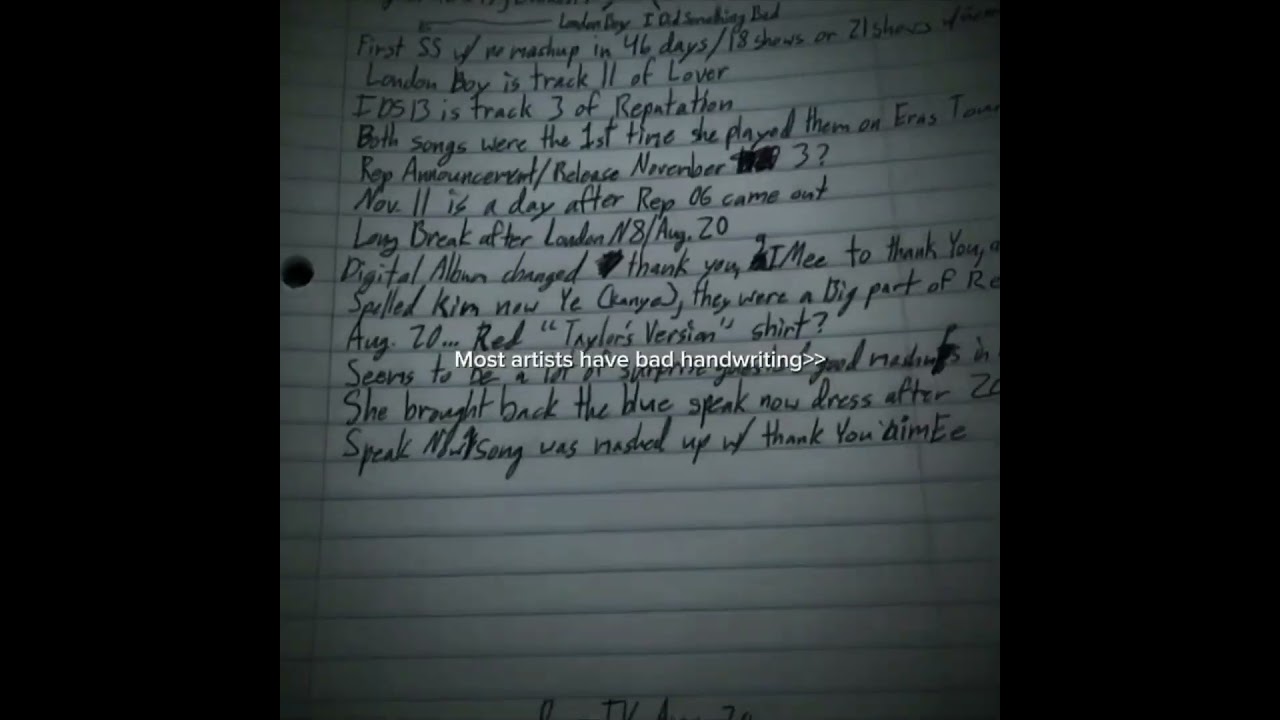 London Boy I Did Something Bad
First SS w/ no mashup in 46 days/18 shows or 21 shows
London Boy is track 11 of Lover
IDSB is track 3 of Reputation
Both songs were the 1st time she played them on Eras Tour
Rep Announcement/Release November 3?
Nov. 11 is a day after Rep OG came out
Long Break after London N8/Aug. 20
Digital Album changed thank you, aIMee to thank You,
Spelled Kim now Ye (Kanye), they were a Big part of Re
Aug. 20... Red "Taylor's Version" shirt?
Most artists have bad handwriting>>
Seems to be a lot of surprise guests/good mashups in
She brought back the blue speak now dress after
Speak Now song was mashed up w/ thank You aimEe